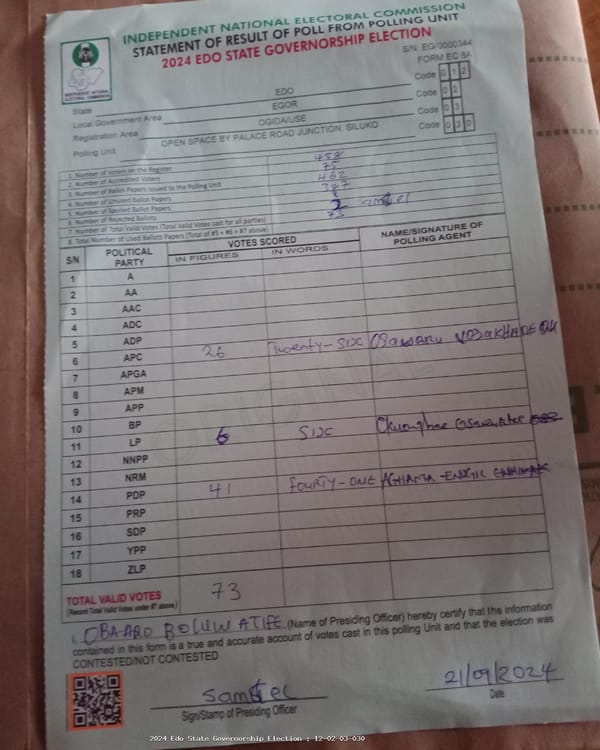 INDEPENDENT NATIONAL ELECTORAL COMMISSION
STATEMENT OF RESULT OF POLL FROM POLLING UNIT
2024 EDO STATE GOVERNORSHIP ELECTION
S/N: EG/0000344
FORM EC 8A
INDEPENDENT NATIONAL ELECTORAL COMMISSION
State EDO Code 0 1 2
Local Government Area EGOR Code 0 2
Registration Area OGIDA/USE Code 0 3
Polling Unit OPEN SPACE BY PALACE ROAD JUNCTION, SILUKO Code 0 3 0
1. Number of Voters on the Register 458
2. Number of Accredited Voters 75
3. Number of Ballot Papers Issued to the Polling Unit 462
4. Number of Unused Ballot Papers 387
5. Number of Spoiled Ballot Papers
6. Number of Rejected Ballots 2
7. Number of Total Valid Votes (Total Valid Votes cast for all parties) 73
8. Total Number of Used Ballots Papers (Total of #5 + #6 + #7 above)
S/N POLITICAL PARTY VOTES SCORED NAME/SIGNATURE OF POLLING AGENT
IN FIGURES IN WORDS
1 A
2 AA
3 AAC
4 ADC
5 ADP
6 APC 26 Twenty-Six
7 APGA
8 APM
9 APP
10 BP
11 LP 6 Six
12 NNPP
13 NRM
14 PDP 41 Fourty-one
15 PRP
16 SDP
17 YPP
18 ZLP
TOTAL VALID VOTES 73
(Record Total Valid Votes under #7 above)
I, OBAARO BOLUWATIFE (Name of Presiding Officer) hereby certify that the information
contained in this form is a true and accurate account of votes cast in this polling Unit and that the election was
CONTESTED/NOT CONTESTED
21/09/2024
Sign/Stamp of Presiding Officer Date
2024 Edo State Governorship Election : 12-02-03-030